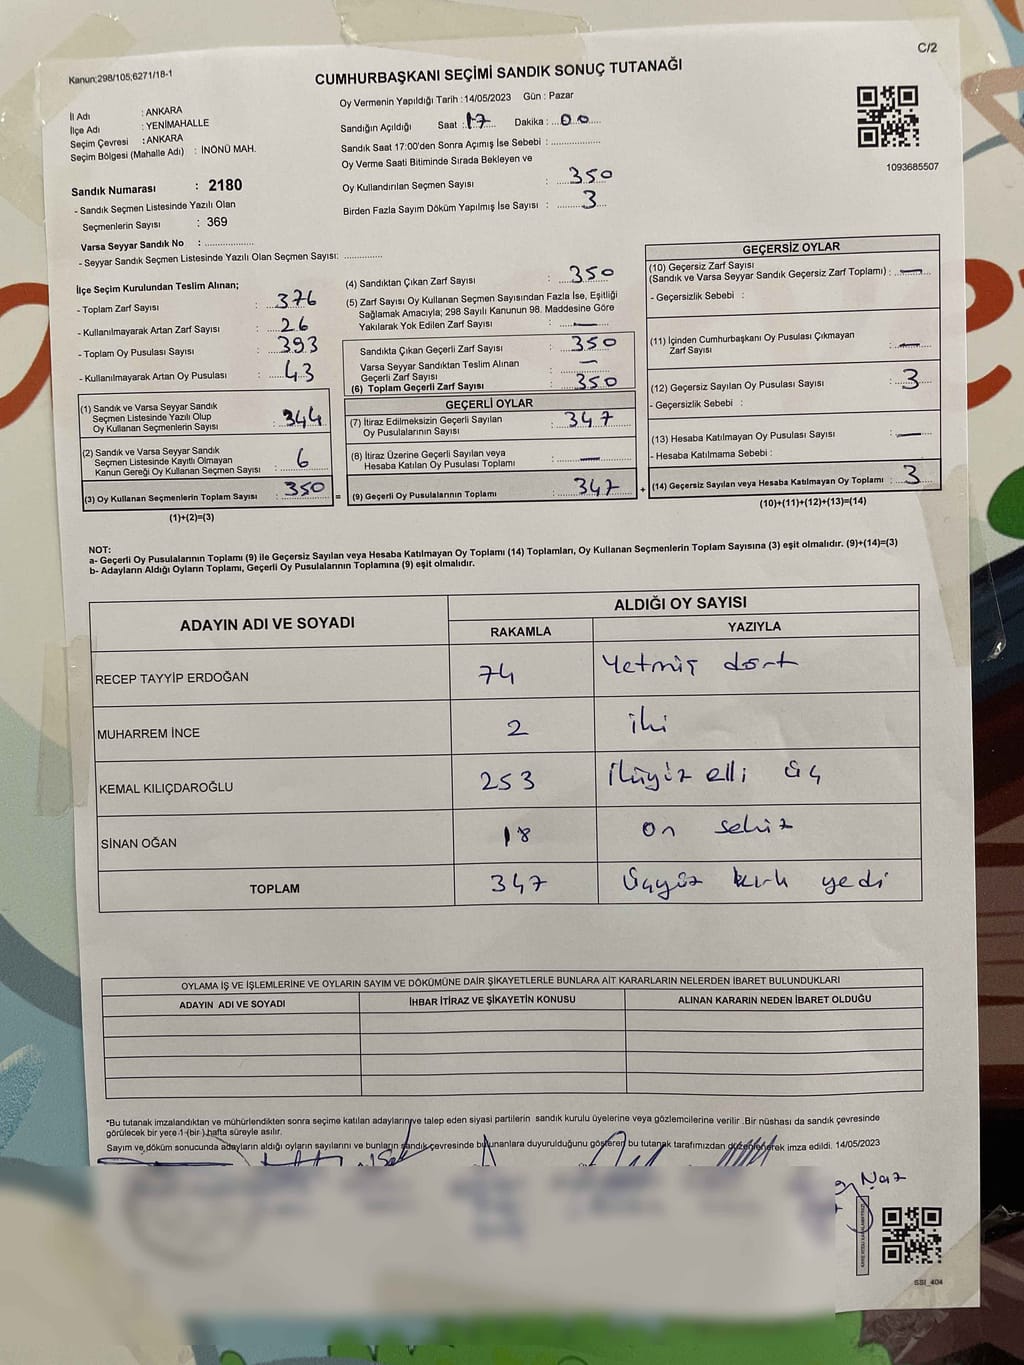 C/2
Kanun;298/105;6271/18-1
CUMHURBAŞKANI SEÇİMİ SANDIK SONUÇ TUTANAĞI
İl Adı : ANKARA
İlçe Adı : YENİMAHALLE
Seçim Çevresi : ANKARA
Seçim Bölgesi (Mahalle Adı) : İNÖNÜ MAH.
Sandık Numarası : 2180
- Sandık Seçmen Listesinde Yazılı Olan
Seçmenlerin Sayısı : 369
Varsa Seyyar Sandık No : ..................
- Seyyar Sandık Seçmen Listesinde Yazılı Olan Seçmen Sayısı: ..............
Oy Vermenin Yapıldığı Tarih : 14/05/2023 Gün : Pazar
Sandığın Açıldığı Saat : 17 Dakika : 00
Sandık Saat 17:00'den Sonra Açımış İse Sebebi : ..................
Oy Verme Saati Bitiminde Sırada Bekleyen ve
Oy Kullandırılan Seçmen Sayısı : 350
Birden Fazla Sayım Döküm Yapılmış İse Sayısı : 3
1093685507
İlçe Seçim Kurulundan Teslim Alınan;
- Toplam Zarf Sayısı : 376
- Kullanılmayarak Artan Zarf Sayısı : 26
- Toplam Oy Pusulası Sayısı : 393
- Kullanılmayarak Artan Oy Pusulası : 43
(1) Sandık ve Varsa Seyyar Sandık
Seçmen Listesinde Yazılı Olup
Oy Kullanan Seçmenlerin Sayısı : 344
(2) Sandık ve Varsa Seyyar Sandık
Seçmen Listesinde Kayıtlı Olmayan
Kanun Gereği Oy Kullanan Seçmen Sayısı : 6
(3) Oy Kullanan Seçmenlerin Toplam Sayısı : 350 =
(1)+(2)=(3)
(4) Sandıktan Çıkan Zarf Sayısı : 350
(5) Zarf Sayısı Oy Kullanan Seçmen Sayısından Fazla İse, Eşitliği
Sağlamak Amacıyla; 298 Sayılı Kanunun 98. Maddesine Göre
Yakılarak Yok Edilen Zarf Sayısı : —
Sandıkta Çıkan Geçerli Zarf Sayısı : 350
Varsa Seyyar Sandıktan Teslim Alınan
Geçerli Zarf Sayısı : —
(6) Toplam Geçerli Zarf Sayısı : 350
GEÇERLİ OYLAR
(7) İtiraz Edilmeksizin Geçerli Sayılan
Oy Pusulalarının Sayısı : 347
(8) İtiraz Üzerine Geçerli Sayılan veya
Hesaba Katılan Oy Pusulası Toplamı : —
(9) Geçerli Oy Pusulalarının Toplamı : 347 +
GEÇERSİZ OYLAR
(10) Geçersiz Zarf Sayısı
(Sandık ve Varsa Seyyar Sandık Geçersiz Zarf Toplamı) : —
- Geçersizlik Sebebi :
(11) İçinden Cumhurbaşkanı Oy Pusulası Çıkmayan
Zarf Sayısı : —
(12) Geçersiz Sayılan Oy Pusulası Sayısı : 3
- Geçersizlik Sebebi :
(13) Hesaba Katılmayan Oy Pusulası Sayısı : —
- Hesaba Katılmama Sebebi :
(14) Geçersiz Sayılan veya Hesaba Katılmayan Oy Toplamı : 3
(10)+(11)+(12)+(13)=(14)
NOT:
a- Geçerli Oy Pusulalarının Toplamı (9) ile Geçersiz Sayılan veya Hesaba Katılmayan Oy Toplamı (14) Toplamları, Oy Kullanan Seçmenlerin Toplam Sayısına (3) eşit olmalıdır. (9)+(14)=(3)
b- Adayların Aldığı Oyların Toplamı, Geçerli Oy Pusulalarının Toplamına (9) eşit olmalıdır.
ADAYIN ADI VE SOYADI ALDIĞI OY SAYISI
RAKAMLA YAZIYLA
RECEP TAYYİP ERDOĞAN 74 Yetmiş dört
MUHARREM İNCE 2 iki
KEMAL KILIÇDAROĞLU 253 İkiyüz elli üç
SİNAN OĞAN 18 on sekiz
TOPLAM 347 Üçyüz kırk yedi
OYLAMA İŞ VE İŞLEMLERİNE VE OYLARIN SAYIM VE DÖKÜMÜNE DAİR ŞİKAYETLERLE BUNLARA AİT KARARLARIN NELERDEN İBARET BULUNDUKLARI
ADAYIN ADI VE SOYADI İHBAR İTİRAZ VE ŞİKAYETİN KONUSU ALINAN KARARIN NEDEN İBARET OLDUĞU
*Bu tutanak imzalandıktan ve mühürlendikten sonra seçime katılan adayların ve talep eden siyasi partilerin sandık kurulu üyelerine veya gözlemcilerine verilir .Bir nüshası da sandık çevresinde
görülecek bir yere 1 (bir ) hafta süreyle asılır.
Sayım ve döküm sonucunda adayların aldığı oyların sayılarını ve bunların sandık çevresinde bulunanlara duyurulduğunu gösteren bu tutanak tarafımızdan düzenlenerek imza edildi. 14/05/2023
Naz
SSI_404